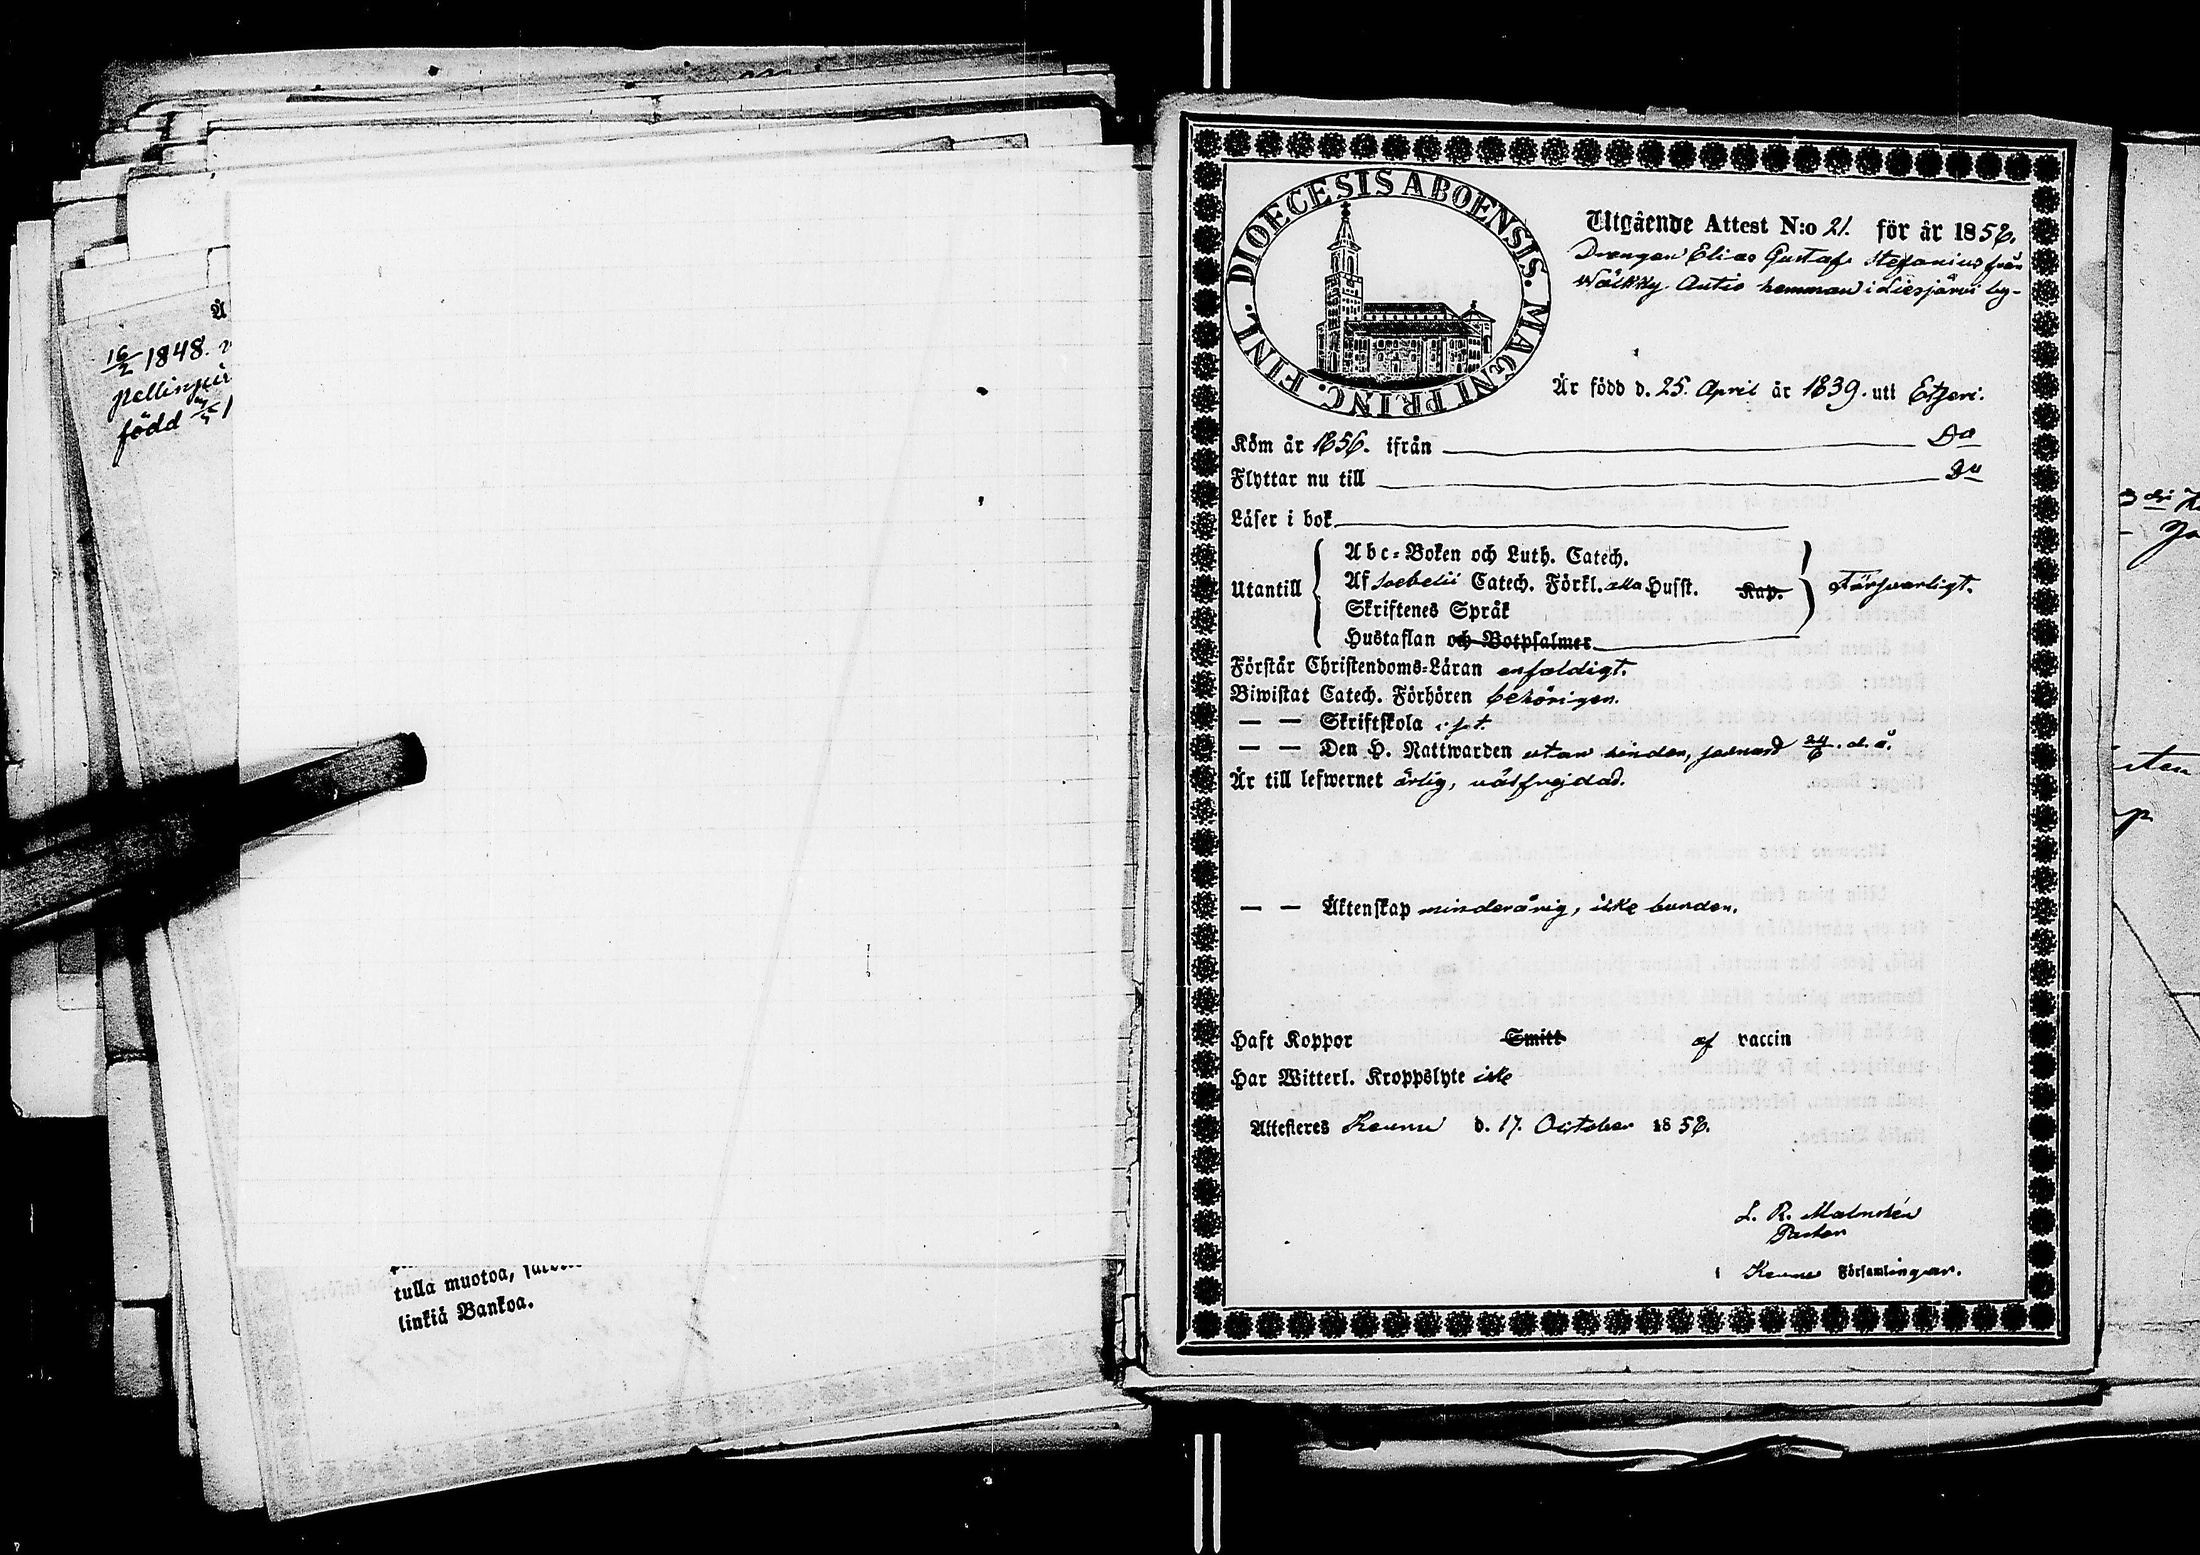 16/2 1848.
född
tulla muotoa,
linkiä Bankoa.
DIOECESIS ABOENSIS. MAGNI PRINC. FINL.
Utgående Attest N:o 21. för år 1858.
Drengen Elias Gustaf Stefanius från
Wälkky Antio hemman i Liesjärvi by
Är född d. 25. April år 1839. uti Etseri.
Kom år 1856. ifrån Do
Flyttar nu till Do
Läser i bok
Utantill
Abc-Boken och Luth. Catech.
Af Catech. Förkl. alla Husst. Kap.
Skriftenes Språk
Hustaflan och Botpsalmer
Försvarligt.
Förstår Christendoms-Läran enfaldigt.
Biwistat Catech. Förhören behörigen.
— — Skriftskola
— — Den H. Nattwarden utan hinder, senast 24/6 d. å.
Är till lefwernet ärlig, välfrejdad.
— — Äktenskap minderårig, icke bunden.
Haft Koppor Smitt af vaccin
Har Witterl. Kroppslyte icke
Attesteres Keuru d. 17. October 1858.
L. R. Malmstén
Pastor
i Keuru Församlingar.